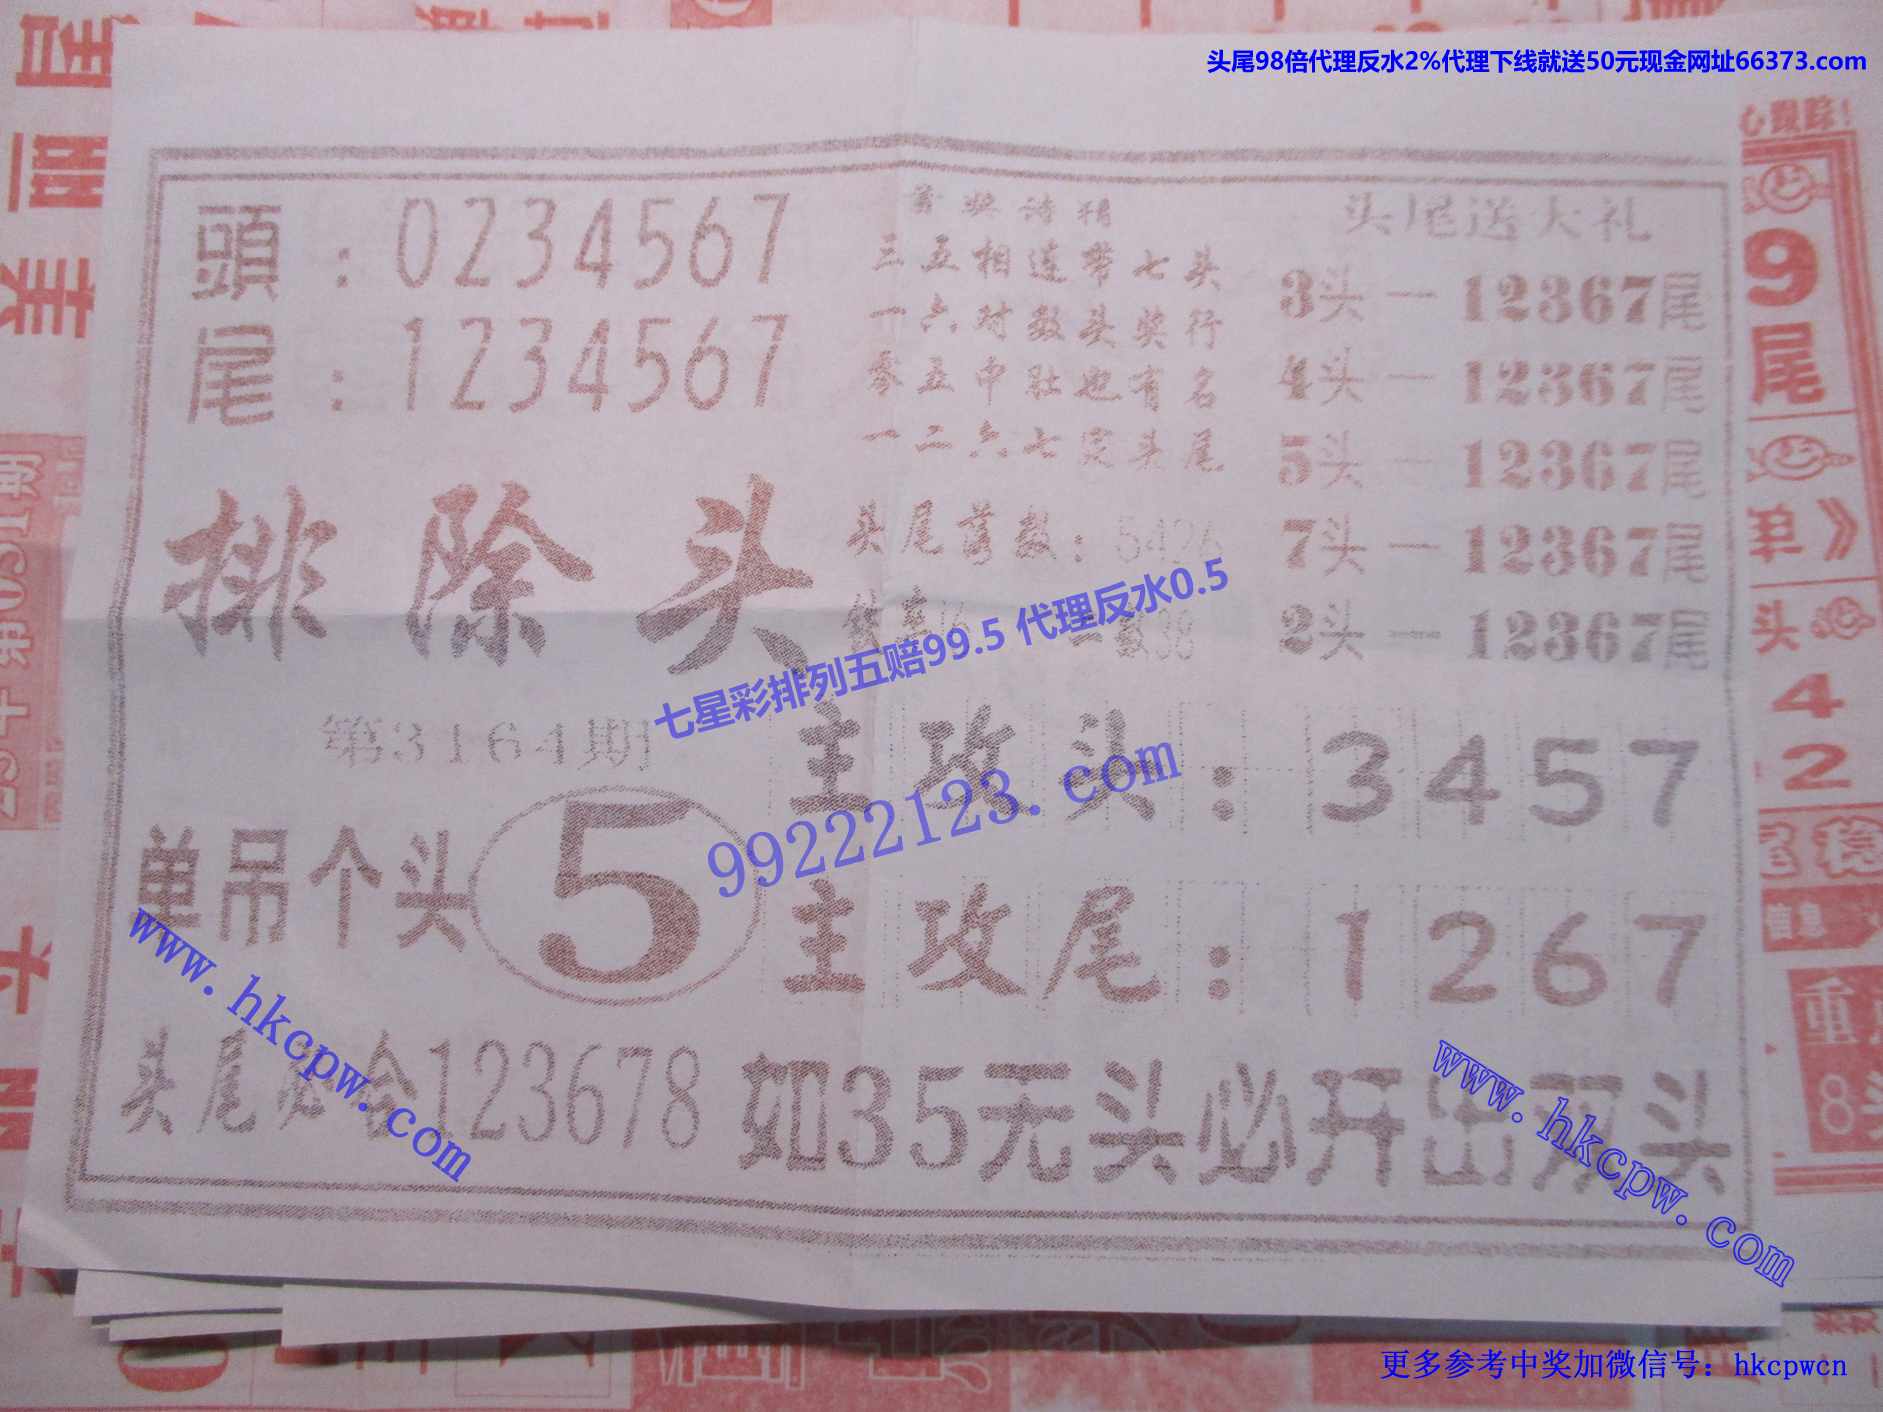 头尾98倍代理反水2%代理下线就送50元现金网址66373.com
頭：0234567
尾：1234567
排除头
第3164期
单吊个头5
头尾必合123678
首奖诗精
三五相连带七头
一六对数头奖行
零五中肚也有名
一二六七定头尾
头尾落数：5426
二数38
头尾送大礼
3头一12367尾
4头一12367尾
5头一12367尾
7头一12367尾
2头一12367尾
七星彩排列五赔99.5 代理反水0.5
99222123.com
主攻头：3457
主攻尾：1267
如35无头必开出双头
www.hkcpw.com
www.hkcpw.com
更多参考中奖加微信号：hkcpwcn
心跟踪
9
尾
头
4
2
稳
信息
重
8
第0351期
美丽